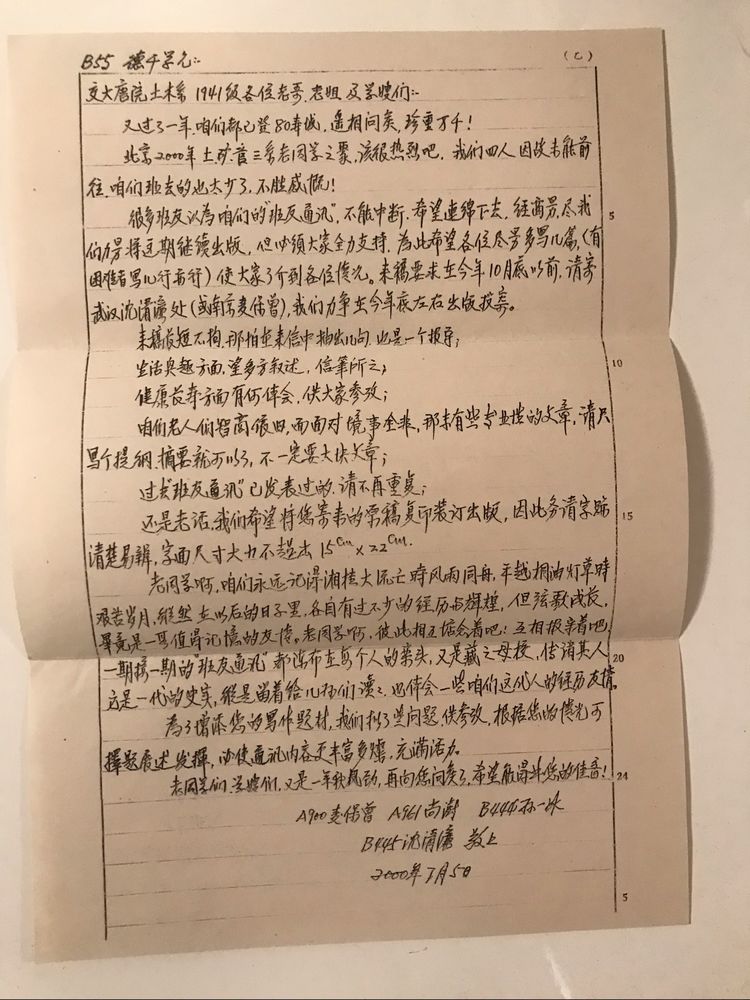 B55 德千学兄:-
(乙)
交大唐院土木系1941级各位老哥、老姐及学嫂们:-
又过了一年,咱们都已登80寿域,遥相问矣,珍重万千!
北京2000年土、矿、管三系老同学之聚,该很热烈吧,我们四人因故未能前
往,咱们班去的也太少了,不胜感慨!
很多班友认为咱们的"班友通讯"不能中断,希望连绵下去,经商另,尽我
们力量将这期继续出版,但必须大家全力支持,为此希望各位尽量多写几篇,(有
困难者写几行亦行)使大家了介到各位情况。来稿要求在今年10月底以前,请寄
武汉沈清濂处(或南京麦保曾),我们力争在今年底左右出版投寄。
来稿长短不拘,那怕在来信中抽出几句,也是一个报导;
生活兴趣方面,望多方叙述,信笔所之;
健康长寿方面有何体会,供大家参攷;
咱们老人们智商依旧,而面对境事全非,那末有些专业性的文章,请只
写个提纲、摘要就可以了,不一定要大块文章;
过去"班友通讯"已发表过的,请不再重复;
还是老话,我们希望将您寄来的原稿复印装订出版,因此务请字跡
清楚易辨,字面尺寸大力不超出15cm×22cm.
老同学啊,咱们永远记得湘桂大流亡时风雨同舟,平越桐油灯草时
艰苦岁月,纵然在以后的日子里,各自有过不少的经历与辉煌,但弦歌成长,
毕竟是一头值得记憶的友情。老同学啊,彼此相互惦念着吧!互相报导着吧,
一期接一期的"班友通讯"都活布在每个人的案头,又是藏之母校,传诸其人
这是一代的史实,纵是留着给儿孙们读之,也体会一些咱们这代人的经历友情。
为了增添您的写作题材,我们拟了些问题,供参攷,根据您的情况可
择题展述发挥,必使通讯内容更丰富多睬,充满活力。
老同学们、学嫂们,又是一年秋风动,再向您问矣了,希望能得到您的佳音!
A900麦保曾 A961尚澍 B444孙一冰
B445沈清濂 敬上
2000年7月5日
5
10
15
20
24
5